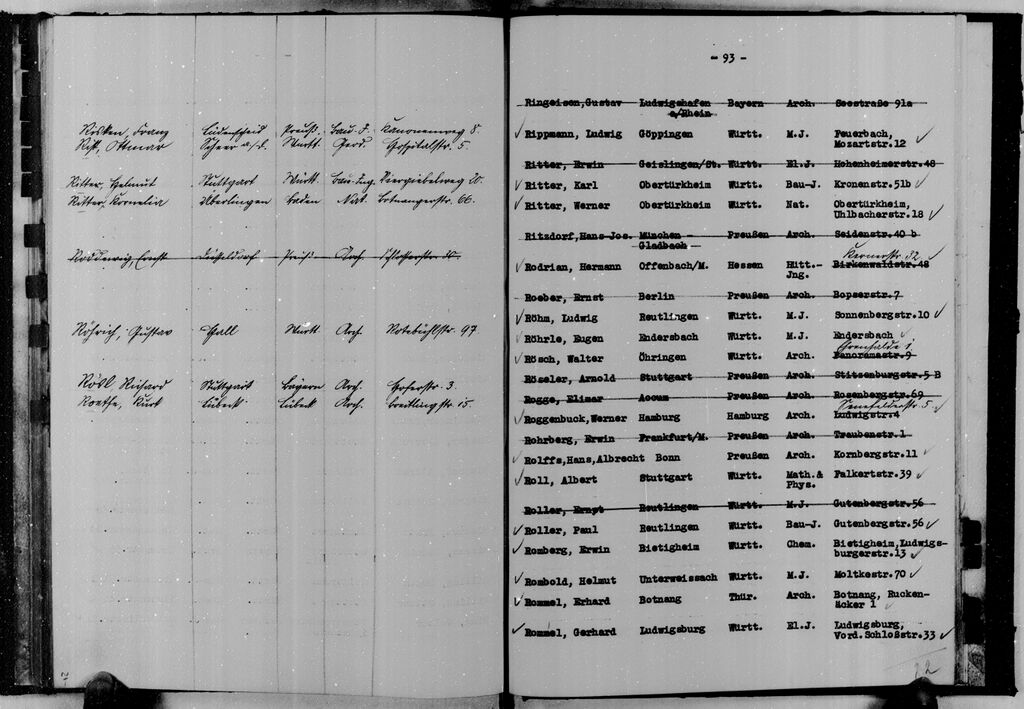 Risken, Franz Lüdenscheid Preuß. Bau-J. Kanonenweg 8.
Rist, Ottmar Scheer a/d. Württ. Gesd. Hospitalstr. 5.
Ritter, Helmut Stuttgart Württ. Bau-Ing. 20.
Ritter, Kornelia Überlingen Baden Nat. Botnangerstr. 66.
Ernst Düsseldorf Preuß. Arch.
Röhrich, Gustav Hall Württ. Arch. Rotebühlstr. 97
Rösl Richard Stuttgart Bayern Arch. 3.
Roethe, Kurt Lübeck Lübeck Arch. Breitlingstr. 15.
- 93 -
Ringeisen,Gustav Ludwigshafen Bayern Arch. Seestraße 91a
a/Rhein
Rippmann, Ludwig Göppingen Württ. M.J. Feuerbach,
Mozartstr.12
Ritter, Erwin Geislingen/St. Württ. El.J. Hohenheimerstr.48
Ritter, Karl Obertürkheim Württ. Bau-J. Kronenstr.51b
Ritter, Werner Obertürkheim Württ. Nat. Obertürkheim,
Uhlbacherstr.18
Ritzdorf,Hans-Jos. München - Preußen Arch. Seidenstr.40 b
Gladbach
Kernerstr. 32
Rodrian, Hermann Offenbach/M. Hessen Hütt.- Birkenwaldstr.48
Jng.
Roeber, Ernst Berlin Preußen Arch. Bopserstr.7
Röhm, Ludwig Reutlingen Württ. M.J. Sonnenbergstr.10
Röhrle, Eugen Endersbach Württ. M.J. Endersbach
Rösch, Walter Öhringen Württ. Arch. Panoramastr.9
Röseler, Arnold Stuttgart Preußen Arch. Stitzenburgstr.5 B
Rogge, Elimar Accum Preußen Arch. Rosenbergstr.69
Senefelderstr. 5.
Roggenbuck,Werner Hamburg Hamburg Arch. Ludwigstr.4
Rohrberg, Erwin Frankfurt/M. Preußen Arch. Traubenstr.1
Rolffs,Hans,Albrecht Bonn Preußen Arch. Kornbergstr.11
Roll, Albert Stuttgart Württ. Math.& Falkertstr.39
Phys.
Roller, Ernst Reutlingen Württ. M.J. Gutenbergstr.56
Roller, Paul Reutlingen Württ. Bau-J. Gutenbergstr.56
Romberg, Erwin Bietigheim Württ. Chem. Bietigheim,Ludwigs-
burgerstr.13
Rombold, Helmut Unterweissach Württ. M.J. Moltkestr.70
Rommel, Erhard Botnang Thür. Arch. Botnang, Rucken-
äcker 1
Rommel, Gerhard Ludwigsburg Württ. El.J. Ludwigsburg,
Vord.Schloßstr.33